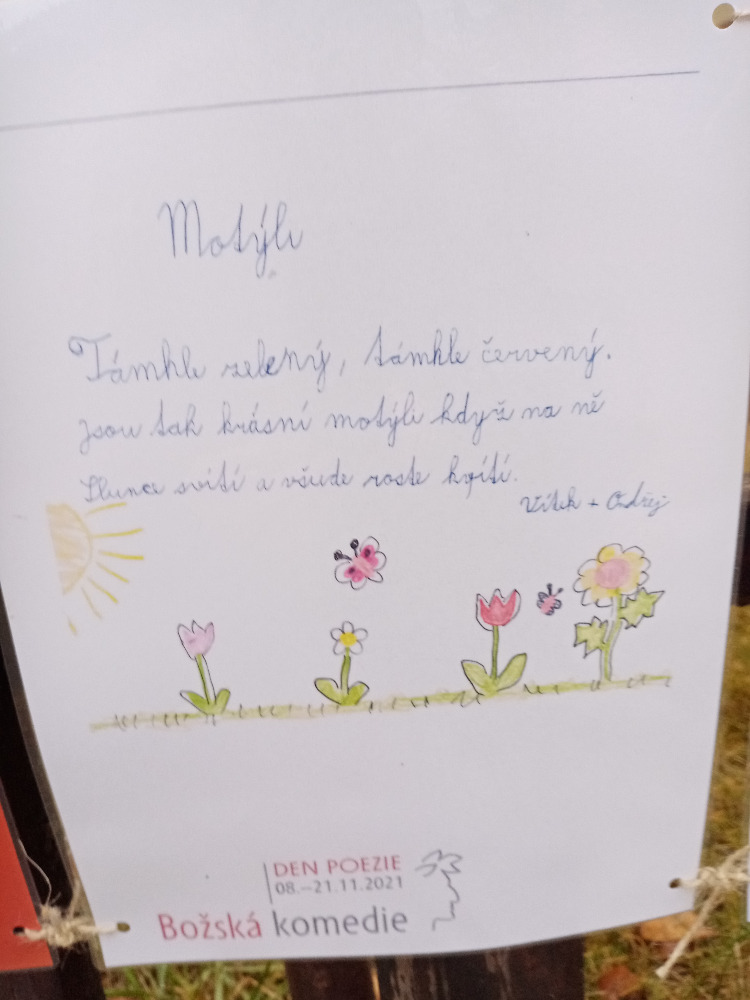 Motýli
Támhle zelený, támhle červený.
jsou tak krásní motýli když na ně
Slunce svítí a všude roste kvítí.
Vítek + Ondřej
DEN POEZIE
08.–21.11.2021
Božská komedie